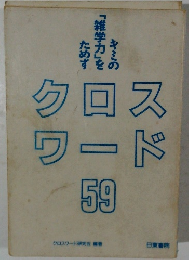 キミの
「雑学力」を
ためす
クロス
ワード
59
クロスワード研究会 編著
日東書院